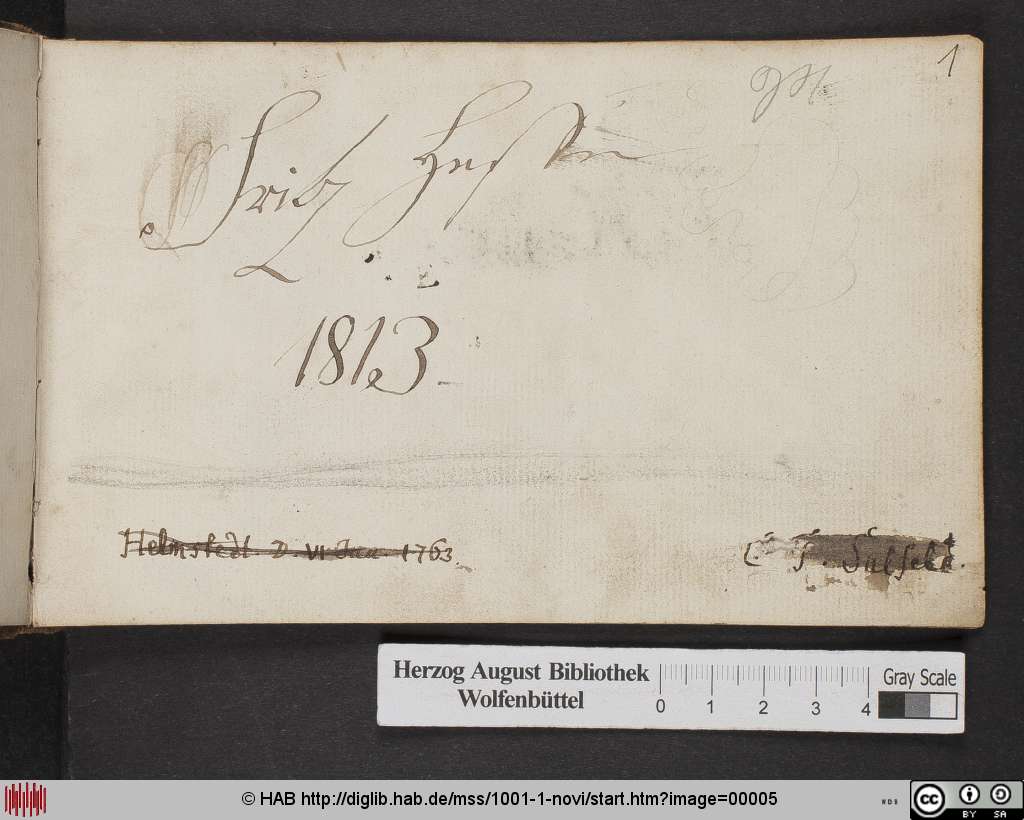 1
Fritz
1813.
Helmstedt D. VI Jan 1763.
C. F.
Herzog August Bibliothek
Wolfenbüttel
0 1 2 3 4
Gray Scale
© HAB http://diglib.hab.de/mss/1001-1-novi/start.htm?image=00005
WDB
cc BY SA